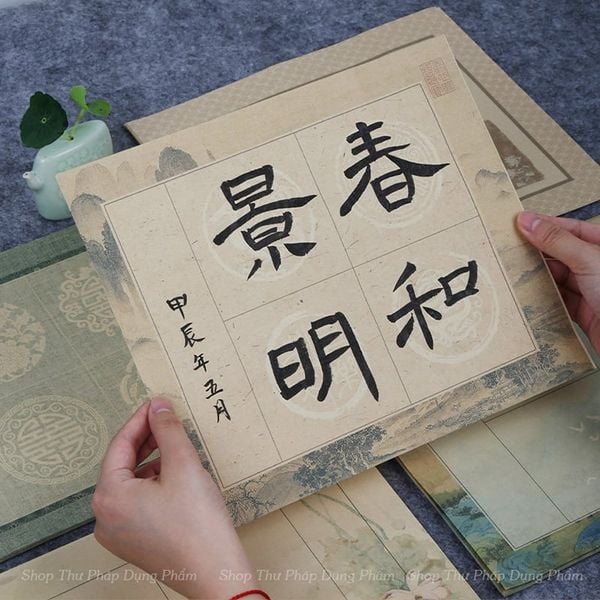 春和
景明
甲辰年五月
Shop Thư Pháp Dụng Phẩm Shop Thư Pháp Dụng Phẩm Shop Thư Pháp Dụng Phẩm